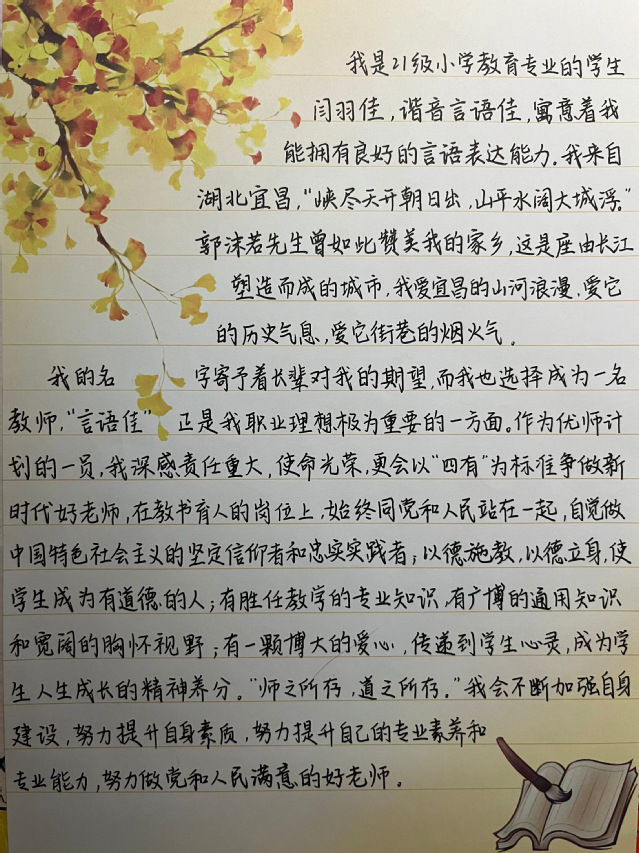 我是21级小学教育专业的学生
闫羽佳，谐音言语佳，寓意着我
能拥有良好的言语表达能力。我来自
湖北宜昌，“峡尽天开朝日出，山平水阔大城浮。”
郭沫若先生曾如此赞美我的家乡，这是座由长江
塑造而成的城市，我爱宜昌的山河浪漫，爱它
的历史气息，爱它街巷的烟火气。
我的名字寄予着长辈对我的期望，而我也选择成为一名
教师，“言语佳”正是我职业理想极为重要的一方面。作为优师计
划的一员，我深感责任重大，使命光荣，更会以“四有”为标准争做新
时代好老师，在教书育人的岗位上，始终同党和人民站在一起，自觉做
中国特色社会主义的坚定信仰者和忠实实践者；以德施教，以德立身，使
学生成为有道德的人；有胜任教学的专业知识，有广博的通用知识
和宽阔的胸怀视野；有一颗博大的爱心，传递到学生心灵，成为学
生人生成长的精神养分。“师之所存，道之所存。”我会不断加强自身
建设，努力提升自身素质，努力提升自己的专业素养和
专业能力，努力做党和人民满意的好老师。